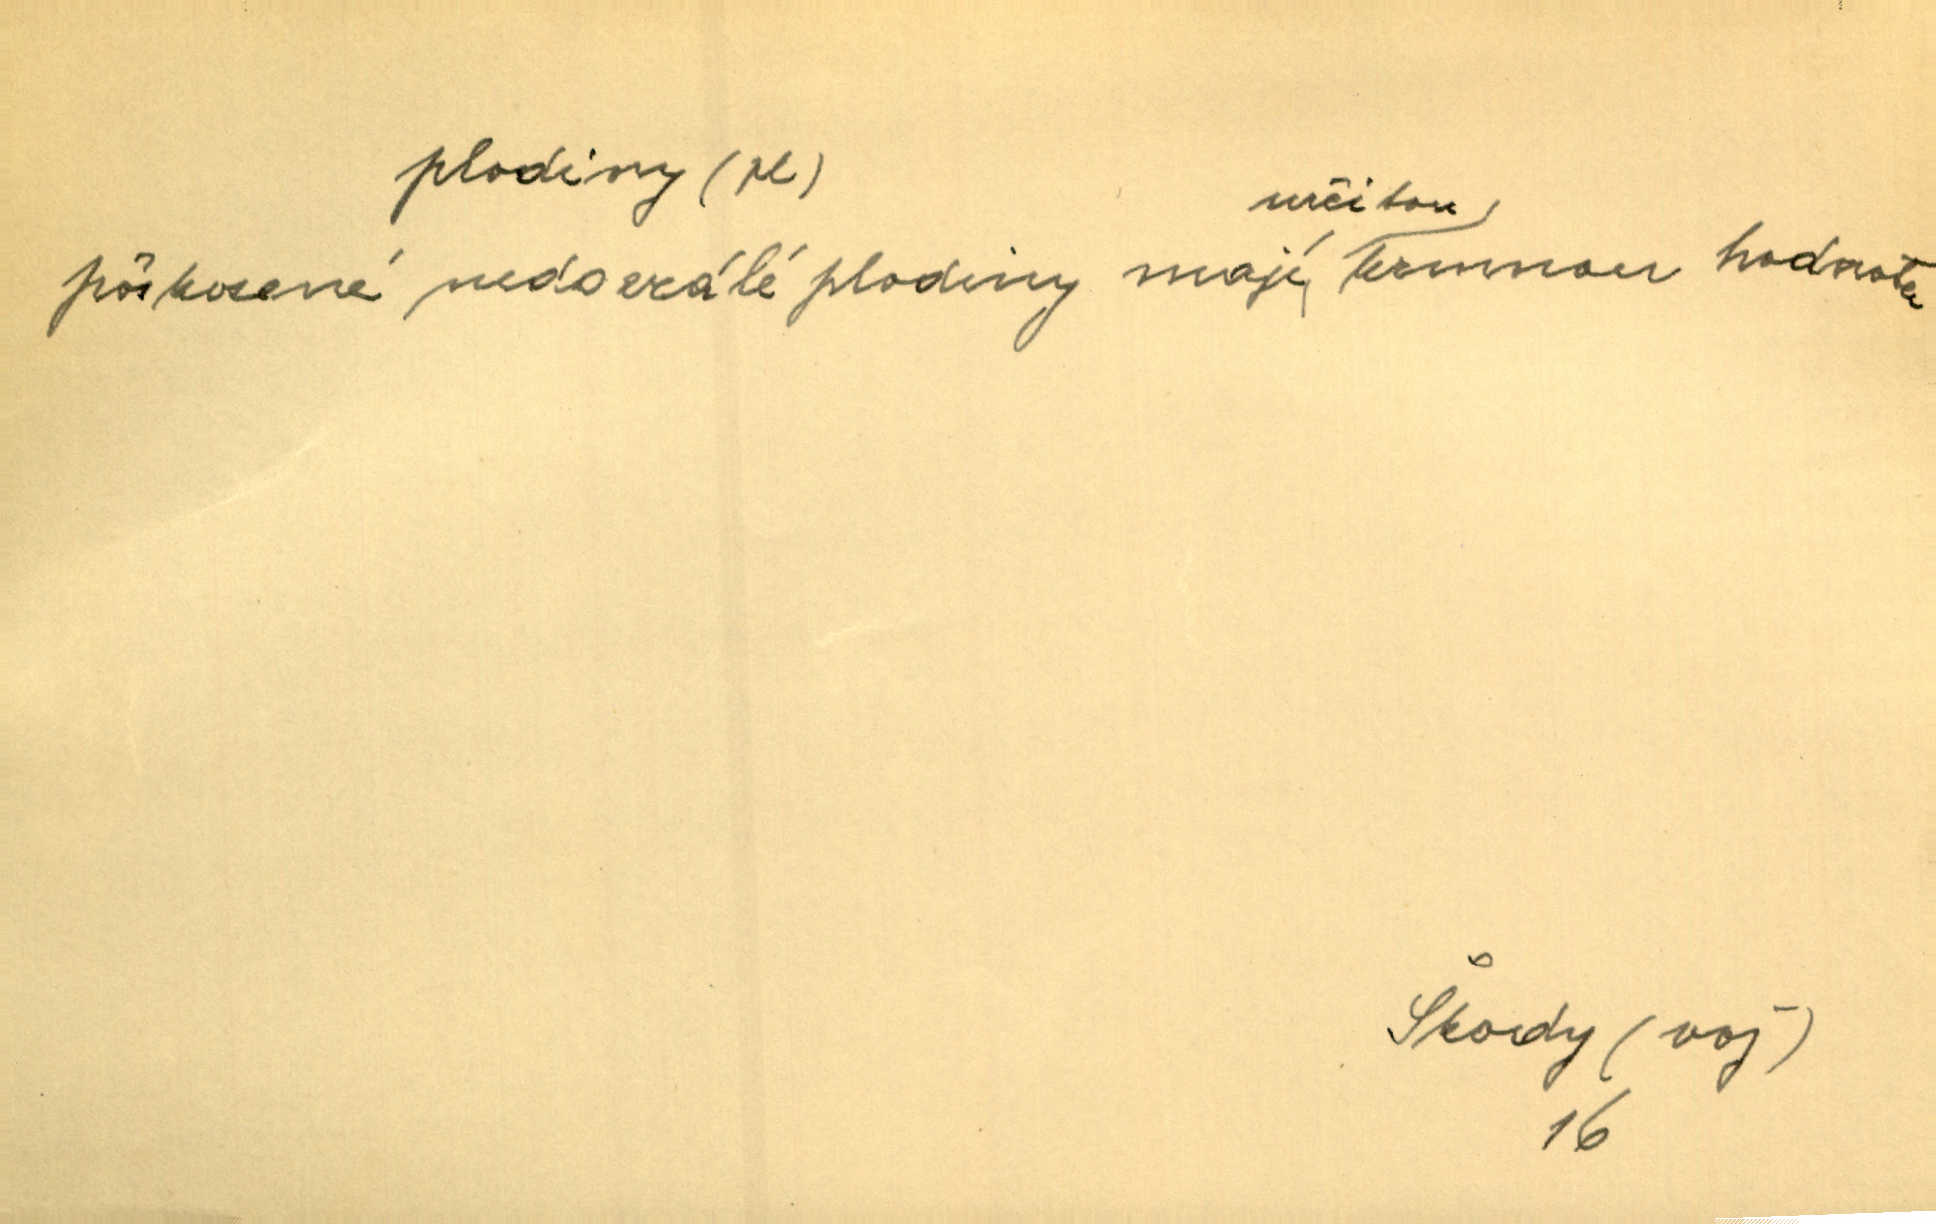 plodiny (pl)
určitou
poškozené nedozrálé plodiny mají krmnou hodnotu
Škody (voj)
16